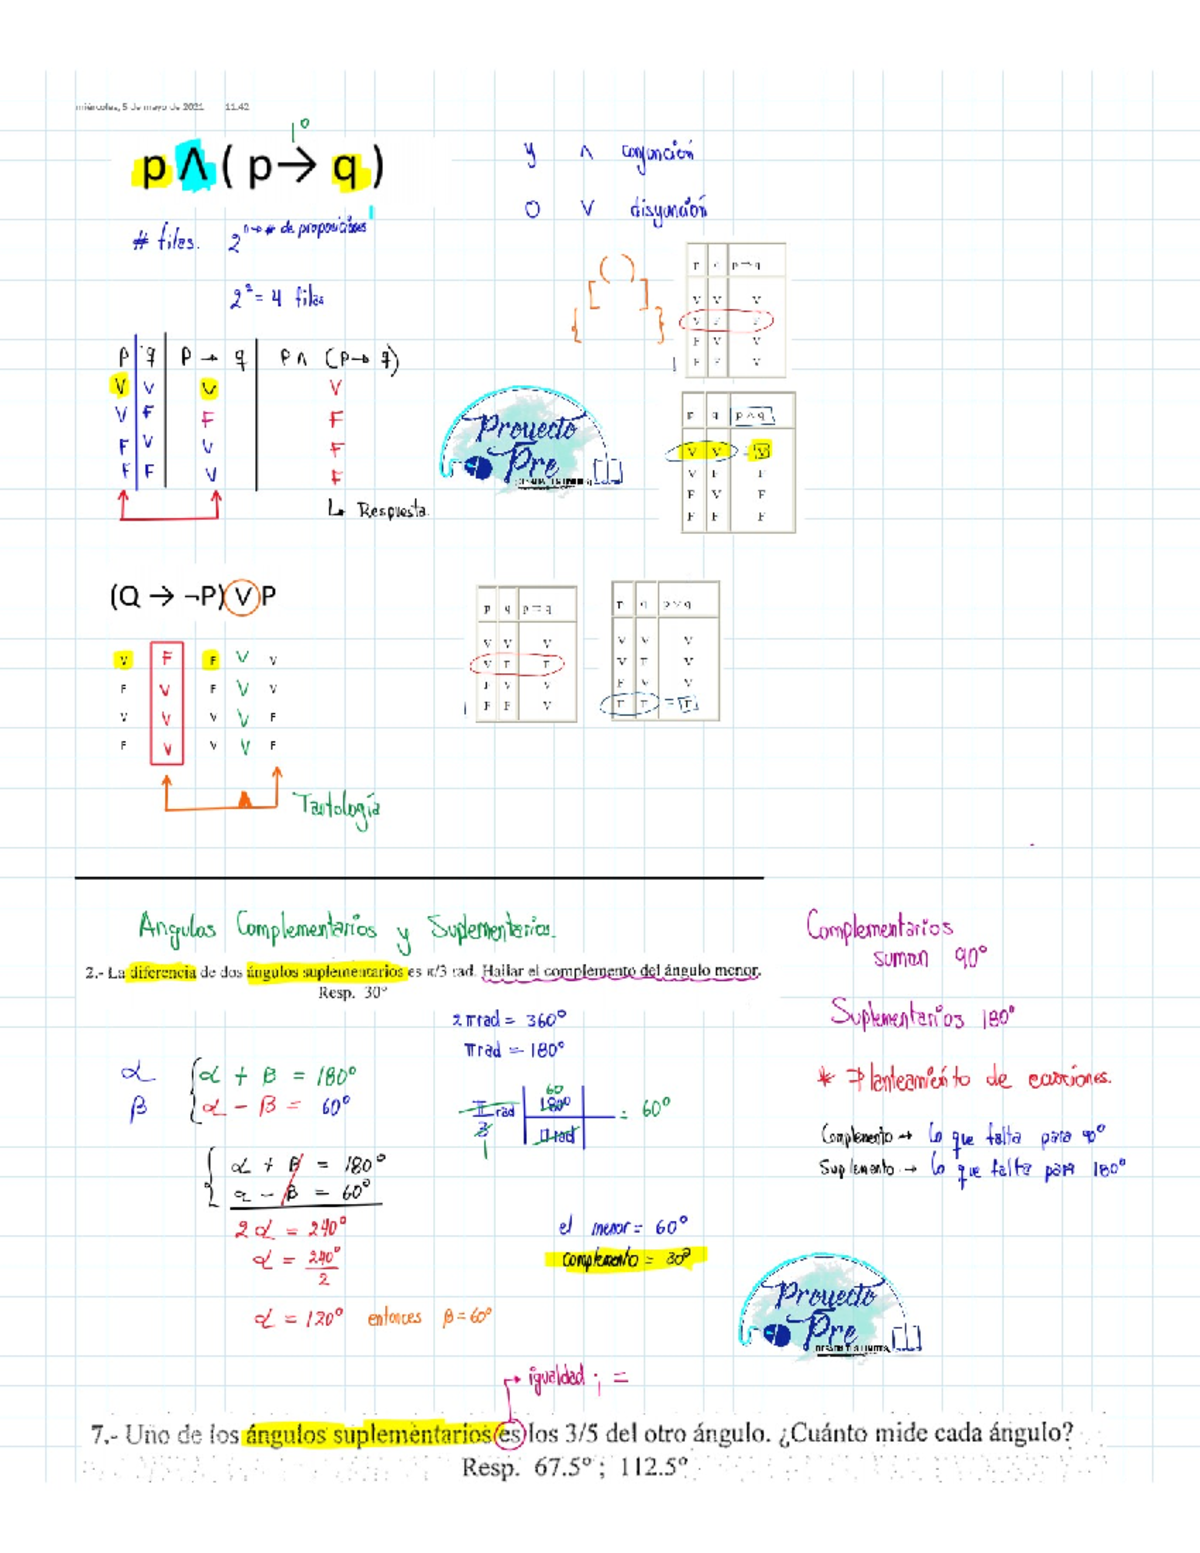 miércoles, 5 de mayo de 2021 11:42
1º
p ∧ ( p → q )
y ∧ conjunción
o ∨ disyunción
# filas. 2^n → # de proposiciones
2² = 4 filas
( )
[ ]
{ }
p q p → q
V V V
V F F
F V V
F F V
p q p → q p ∧ (p → q)
V V V V
V F F F
F V V F
F F V F
↳ Respuesta.
Proyecto
Pre
p q p ∧ q
V V V = V
V F F
F V F
F F F
(Q → ¬P) ∨ P
V F F V V
F V F V V
V V V V F
F V V V F
Tautología
p q p → q
V V V
V F F
F V V
F F V
p q p ∨ q
V V V
V F V
F V V
F F = F
Angulos Complementarios y Suplementarios.
2.- La diferencia de dos ángulos suplementarios es π/3 rad. Hallar el complemento del ángulo menor.
Resp. 30°
Complementarios
suman 90°
Suplementarios 180°
* Planteamiento de ecuaciones.
Complemento → lo que falta para 90°
Suplemento → lo que falta para 180°
2π rad = 360°
π rad = 180°
α
β
α + β = 180°
α - β = 60°
π/3 rad 180° 60 π rad 1 = 60°
α + β = 180°
α - β = 60°
2α = 240°
α = 240°/2
α = 120° entonces β = 60°
el menor = 60°
complemento = 30°
Proyecto
Pre
→ igualdad ; =
7.- Uno de los ángulos suplementarios es los 3/5 del otro ángulo. ¿Cuánto mide cada ángulo?
Resp. 67.5° ; 112.5°